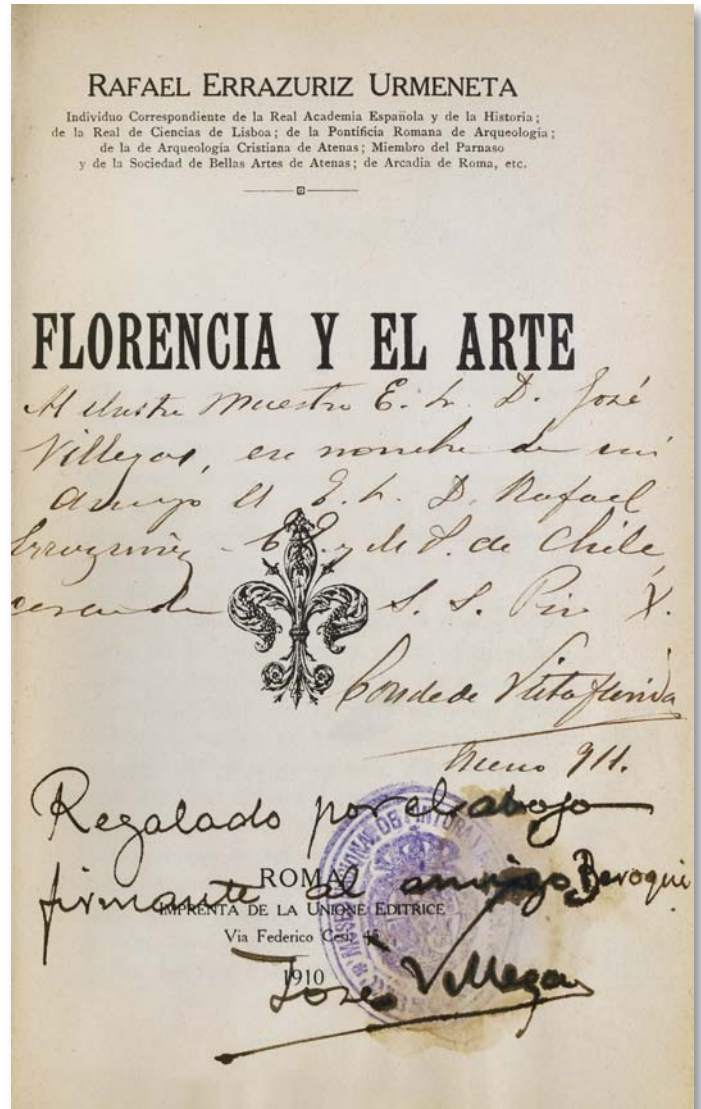 RAFAEL ERRAZURIZ URMENETA
Individuo Correspondiente de la Real Academia Española y de la Historia;
de la Real de Ciencias de Lisboa; de la Pontificia Romana de Arqueología;
de la de Arqueología Cristiana de Atenas; Miembro del Parnaso
y de la Sociedad de Bellas Artes de Atenas; de Arcadia de Roma, etc.
FLORENCIA Y EL ARTE
Al ilustre Maestro E. S. D. José
Villegas, en nombre de mi
amigo el E. S. D. Rafael
Errazuriz - E. E. y M. P. de Chile
cerca de S. S. Pio X.
Conde de Vistaflorida
Enero 911.
Regalado por el abajo
firmante al amigo Beroqui
ROMA
IMPRENTA DE LA UNIONE EDITRICE
Via Federico Cesi, 45
1910
José Villegas
MUSEO NACIONAL DE PINTURA Y